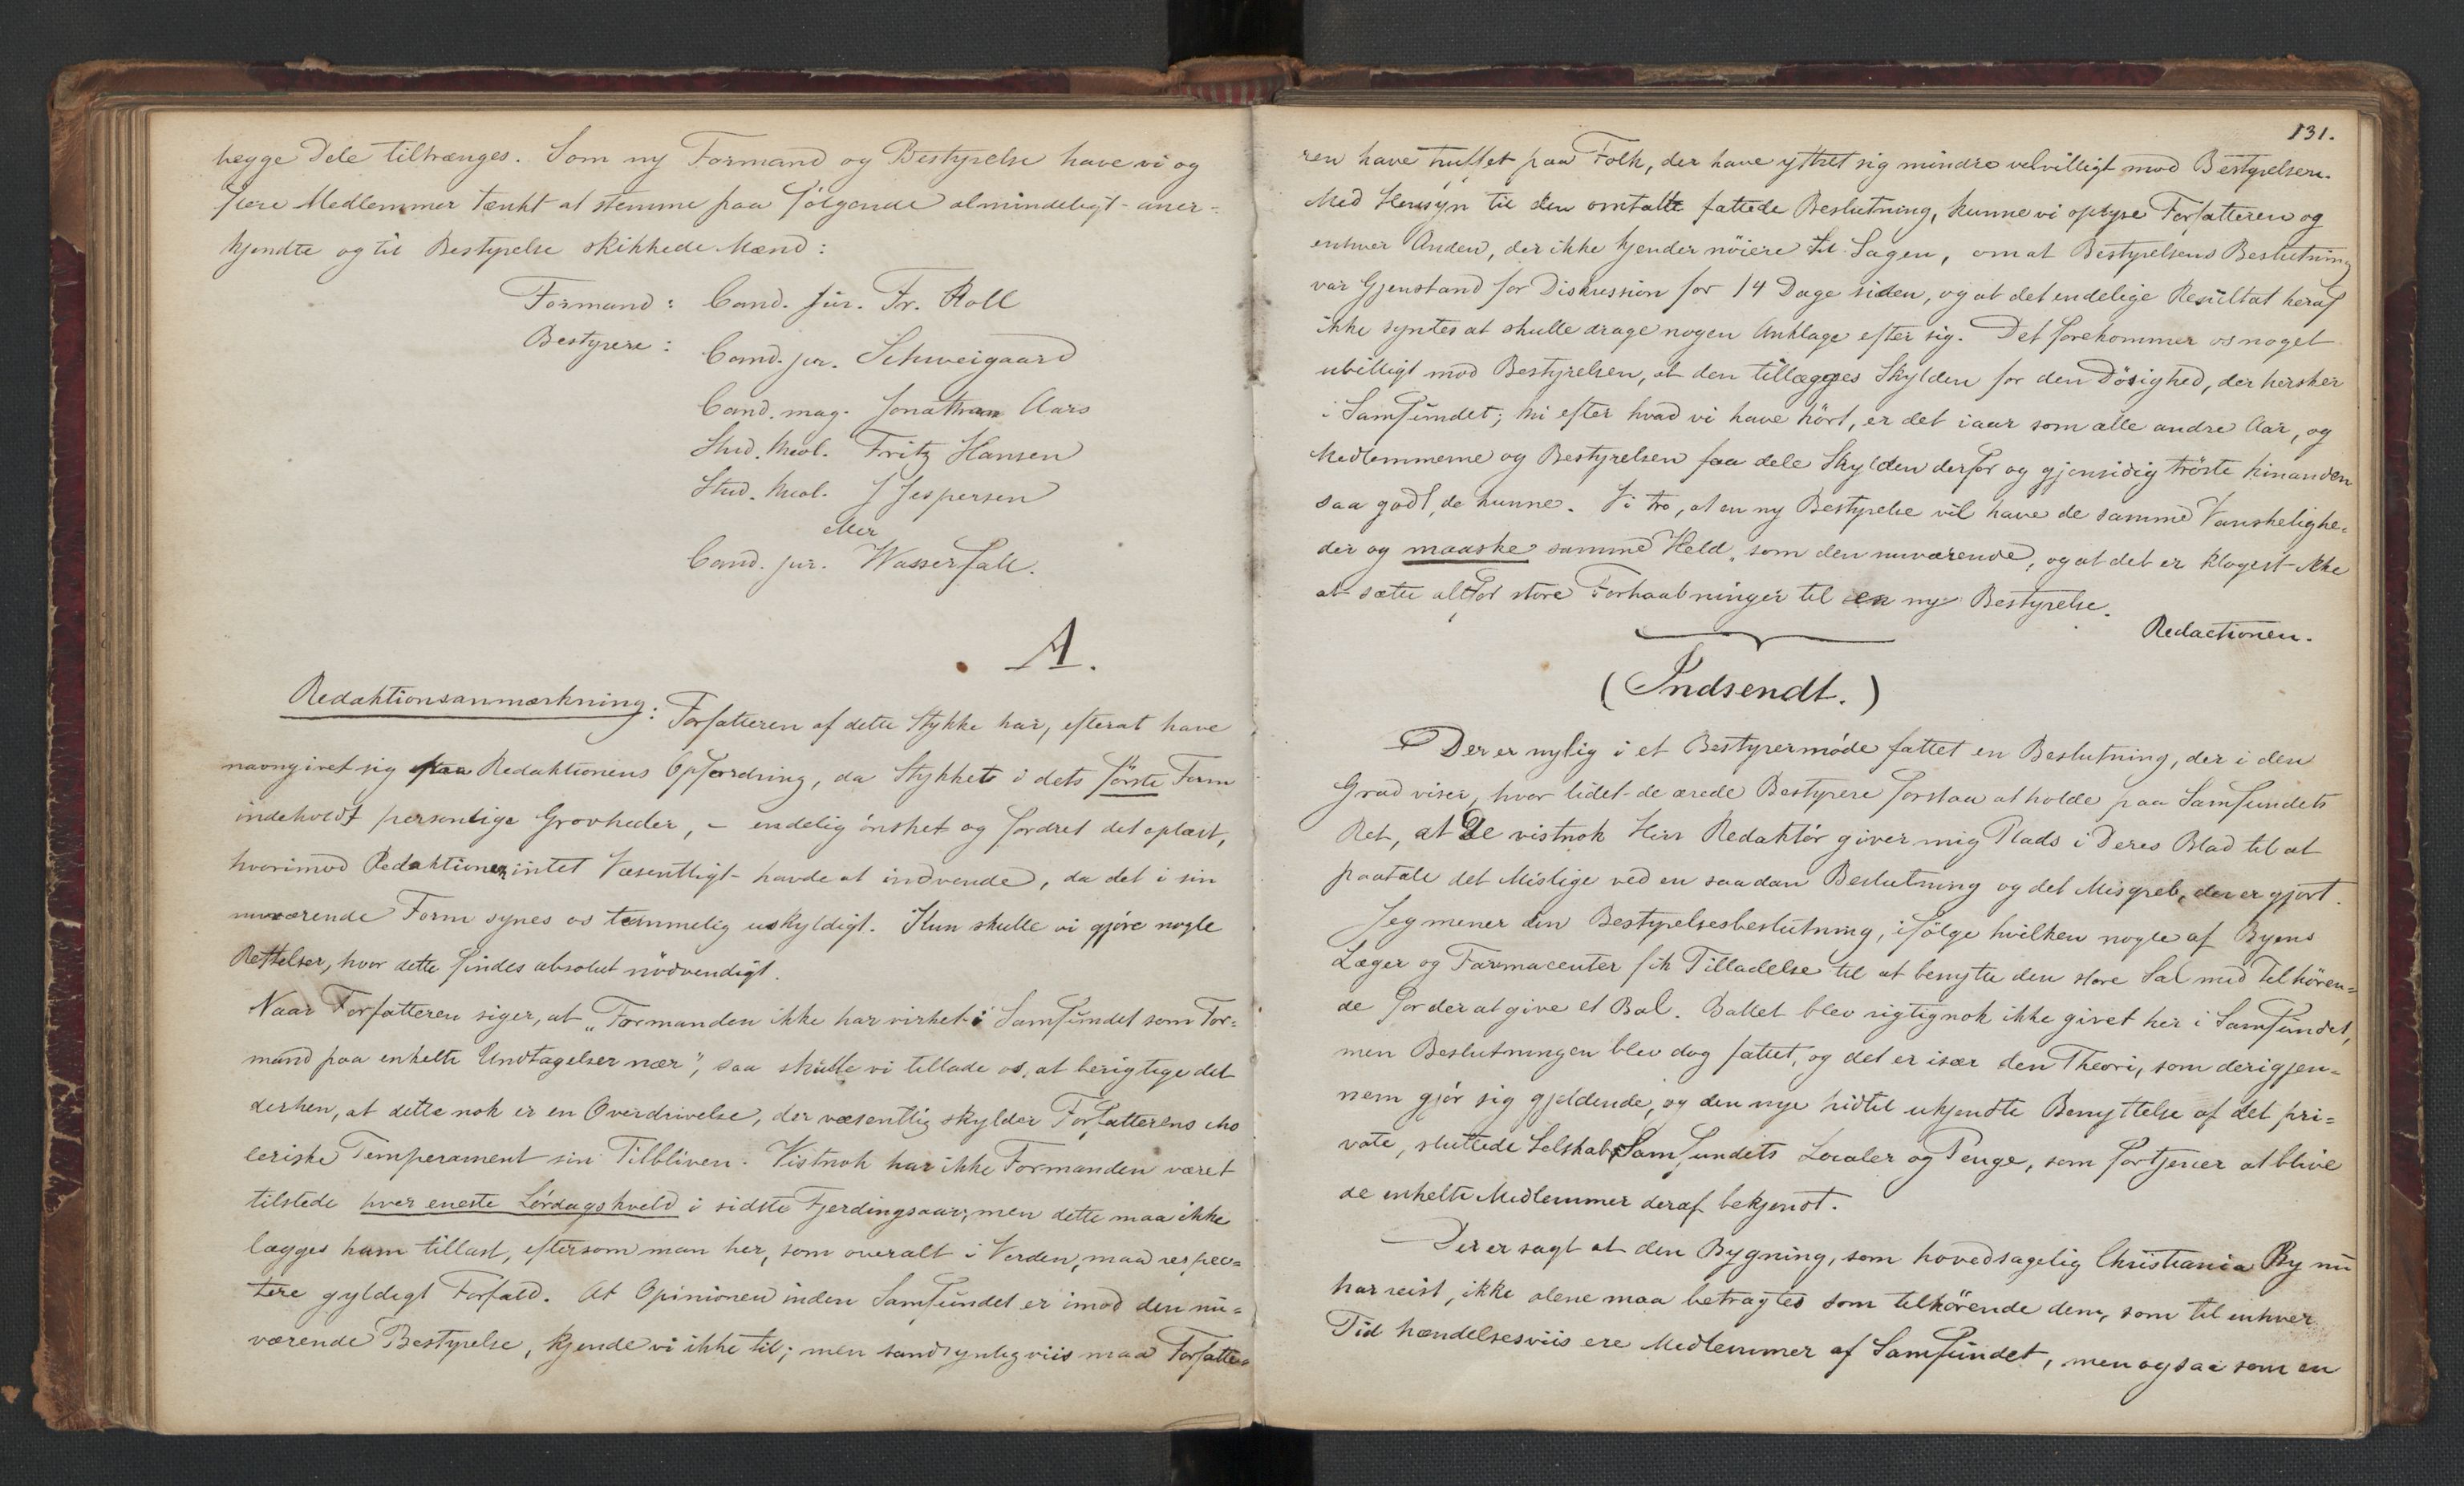 begge Dele tiltrænges. Som ny Formand og Bestyrelse have vi og
flere Medlemmer tænkt at stemme paa følgende almindeligt-aner-
kjendte og til Bestyrelse skikkede Mænd:
Formand: Cand. jur. Fr. Roll
Bestyrere: Cand. jur. Schweigaard
Cand. mag. Jonathan Aars
Stud. theol. Fritz Hansen
Stud. theol. J Jespersen
eller
Cand. jur. Wasserfall.
A.
Redaktionsanmærkning: Forfatteren af dette Stykke har, efterat have
navngivet sig paa Redaktionens Opfordring, da Stykket i dets første Form
indeholdt personlige Grovheder, – endelig ønsket og fordret det oplæst,
hvorimod Redaktionen intet Væsentligt havde at indvende, da det i sin
nuværende Form synes os temmelig uskyldigt. Kun skulle vi gjøre nogle
Rettelser, hvor dette findes absolut nödvendigt.
Naar Forfatteren siger, at „Formanden ikke har virket i Samfundet som For-
mand paa enkelte Undtagelser nær", saa skulle vi tillade os, at berigtige det
derhen, at dette nok er en Overdrivelse, der væsentlig skylder Forfatterens cho
leriske Temperament sin Tilbliven. Vistnok har ikke Formanden været
tilstede hver eneste Lørdagskveld i sidste Fjerdingsaar, men dette maa ikke
lægges ham tillast, eftersom man her, som overalt i Verden, maa respec-
tere gyldigt Forfald. At Opinionen inden Samfundet er imod den nu-
værende Bestyrelse, kjende vi ikke til; men sandsynligviis maa Forfatte-
131.
ren have truffet paa Folk, der have yttret sig mindre velvilligt mod Bestyrelsen.
Med Hensyn til den omtalte fattede Beslutning, kunne vi oplyse Forfatteren og
enhver Anden, der ikke kjender nöiere til Sagen, om at Bestyrelsens Beslutning
var Gjenstand for Diskussion for 14 Dage siden, og at det endelige Resultat heraf
ikke syntes at skulle drage nogen Anklage efter sig. Det forekommer os noget
ubilligt mod Bestyrelsen, at den tillægges Skylden for den Dösighed, der hersker
i Samfundet; thi efter hvad vi have hört, er det iaar som alle andre Aar, og
Medlemmerne og Bestyrelsen faa dele Skylden derfor og gjensidig tröste hinanden
saa godt, de kunne. Vi tro, at en ny Bestyrelse vil have de samme Vanskelighe-
der og maaske samme Held, som den nuværende, og at det er klogest ikke
at sætte altfor store Forhaabninger til en ny Bestyrelse.
Redactionen.
(Indsendt.)
Der er nylig i et Bestyrermöde fattet en Beslutning, der i den
Grad viser, hvor lidet de ærede Bestyrere forstaa at holde paa Samfundets
Ret, at De vistnok Herr Redaktör giver mig Plads i Deres Blad til at
paatale det Mislige ved en saadan Beslutning og det Misgreb, der er gjort.
Jeg mener den Bestyrelsesbeslutning, ifölge hvilken nogle af Byens
Læger og Farmaceuter fik Tilladelse til at benytte den store Sal med Tilhören-
de for der at give et Bal. Ballet blev rigtignok ikke givet her i Samfundet,
men Beslutningen blev dog fattet, og det er især den Theori, som derigjen-
nem gjör sig gjeldende, og den nye hidtil ukjendte Benyttelse af det pri-
vate, sluttede Selskabs Samfundets Localer og Penge, som fortjener at blive
de enkelte Medlemmer deraf bekjendt.
Der er sagt at den Bygning, som hovedsagelig Christiania By nu
har reist, ikke alene maa betragtes som tilhörende dem, som til enhver
Tid hændelsesviis ere Medlemmer af Samfundet, men ogsaa som en